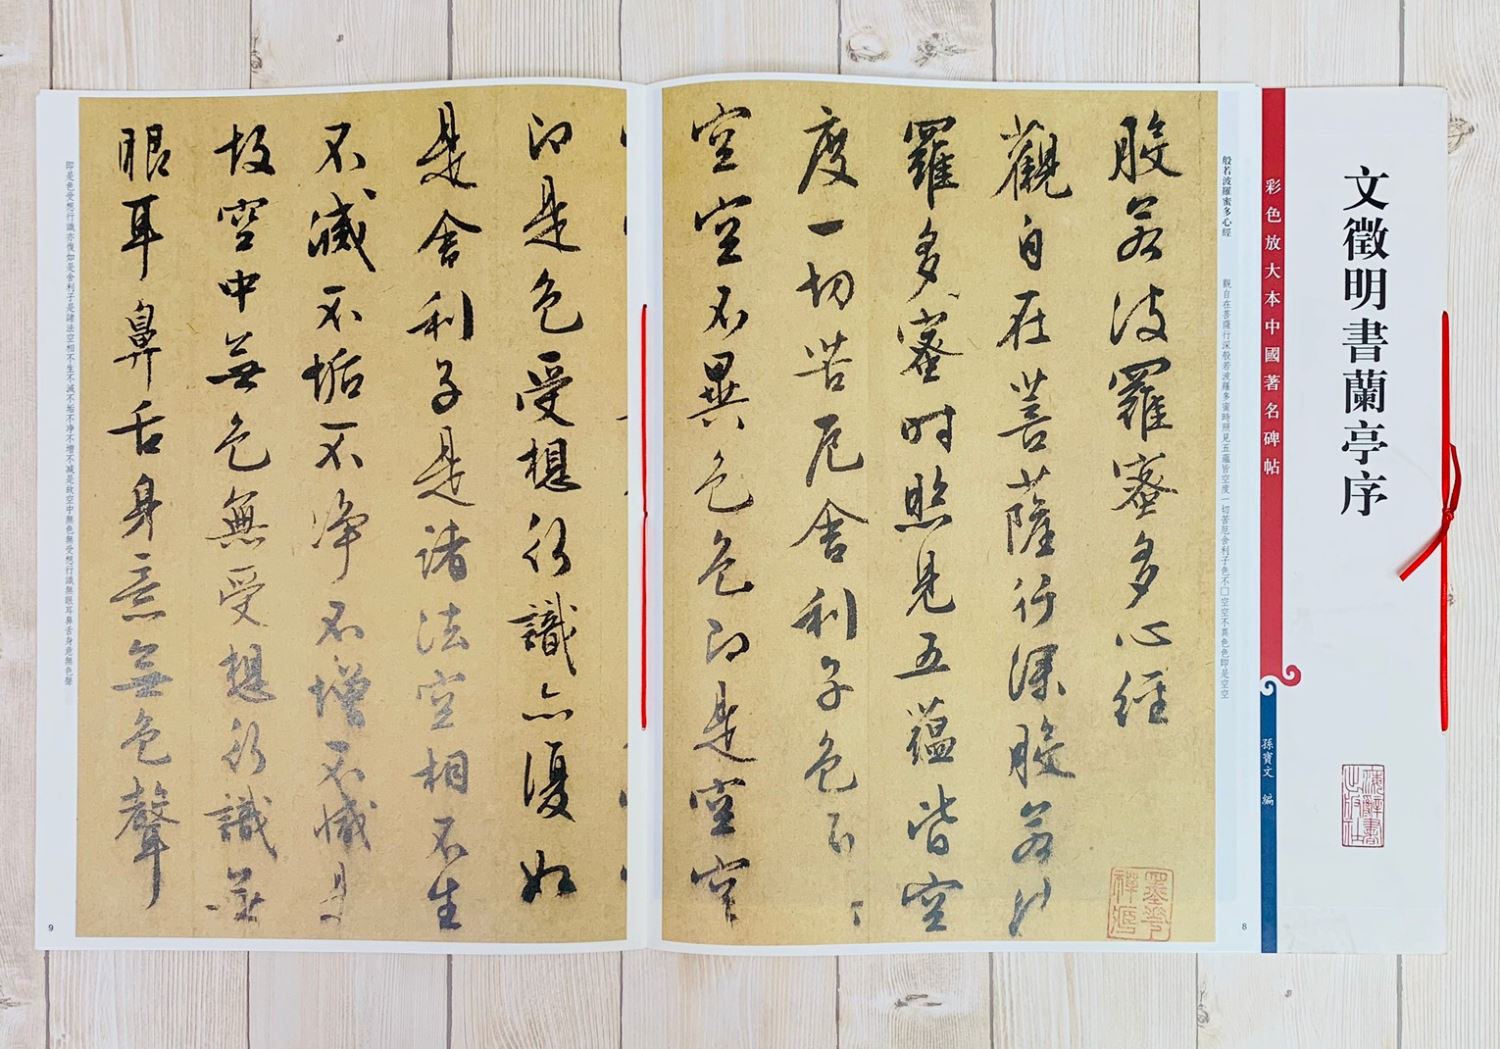 文徵明書蘭亭序
彩色放大本中國著名碑帖
孫寶文 編
般若波羅蜜多心經
觀自在菩薩行深般若波羅多蜜時照見五蘊皆空度一切苦厄舍利子色不□空空不異色色即是空空
般若波羅蜜多心經
觀自在菩薩行深般若
羅多蜜時照見五蘊皆空
度一切苦厄舍利子色不
空空不異色色即是空空
8
即是色受想行識亦復如
是舍利子是諸法空相不生
不滅不垢不淨不增不減是
故空中無色無受想行識無
眼耳鼻舌身意無色聲
即是色受想行識亦復如是舍利子是諸法空相不生不滅不垢不净不增不減是故空中無色無受想行識無眼耳鼻舌身意無色聲
9